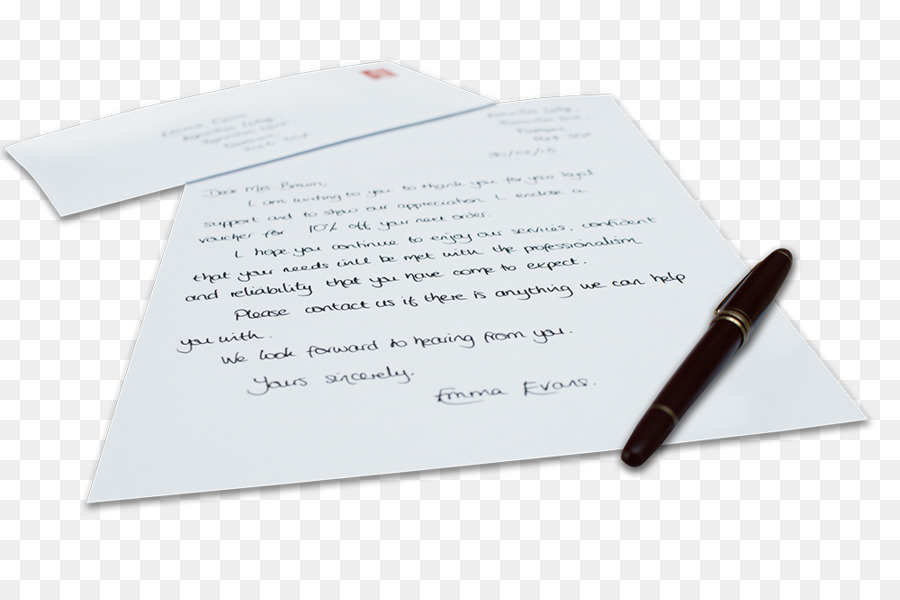 30/02/15
Dear Mrs Brown,
I am writing to you to thank you for your loyal
support and to show our appreciation. I enclose a
voucher for 10% off your next order.
I hope you continue to enjoy our services, confident
that your needs will be met with the professionalism
and reliability that you have come to expect.
Please contact us if there is anything we can help
you with.
We look forward to hearing from you.
Yours sincerely.
Emma Evans.